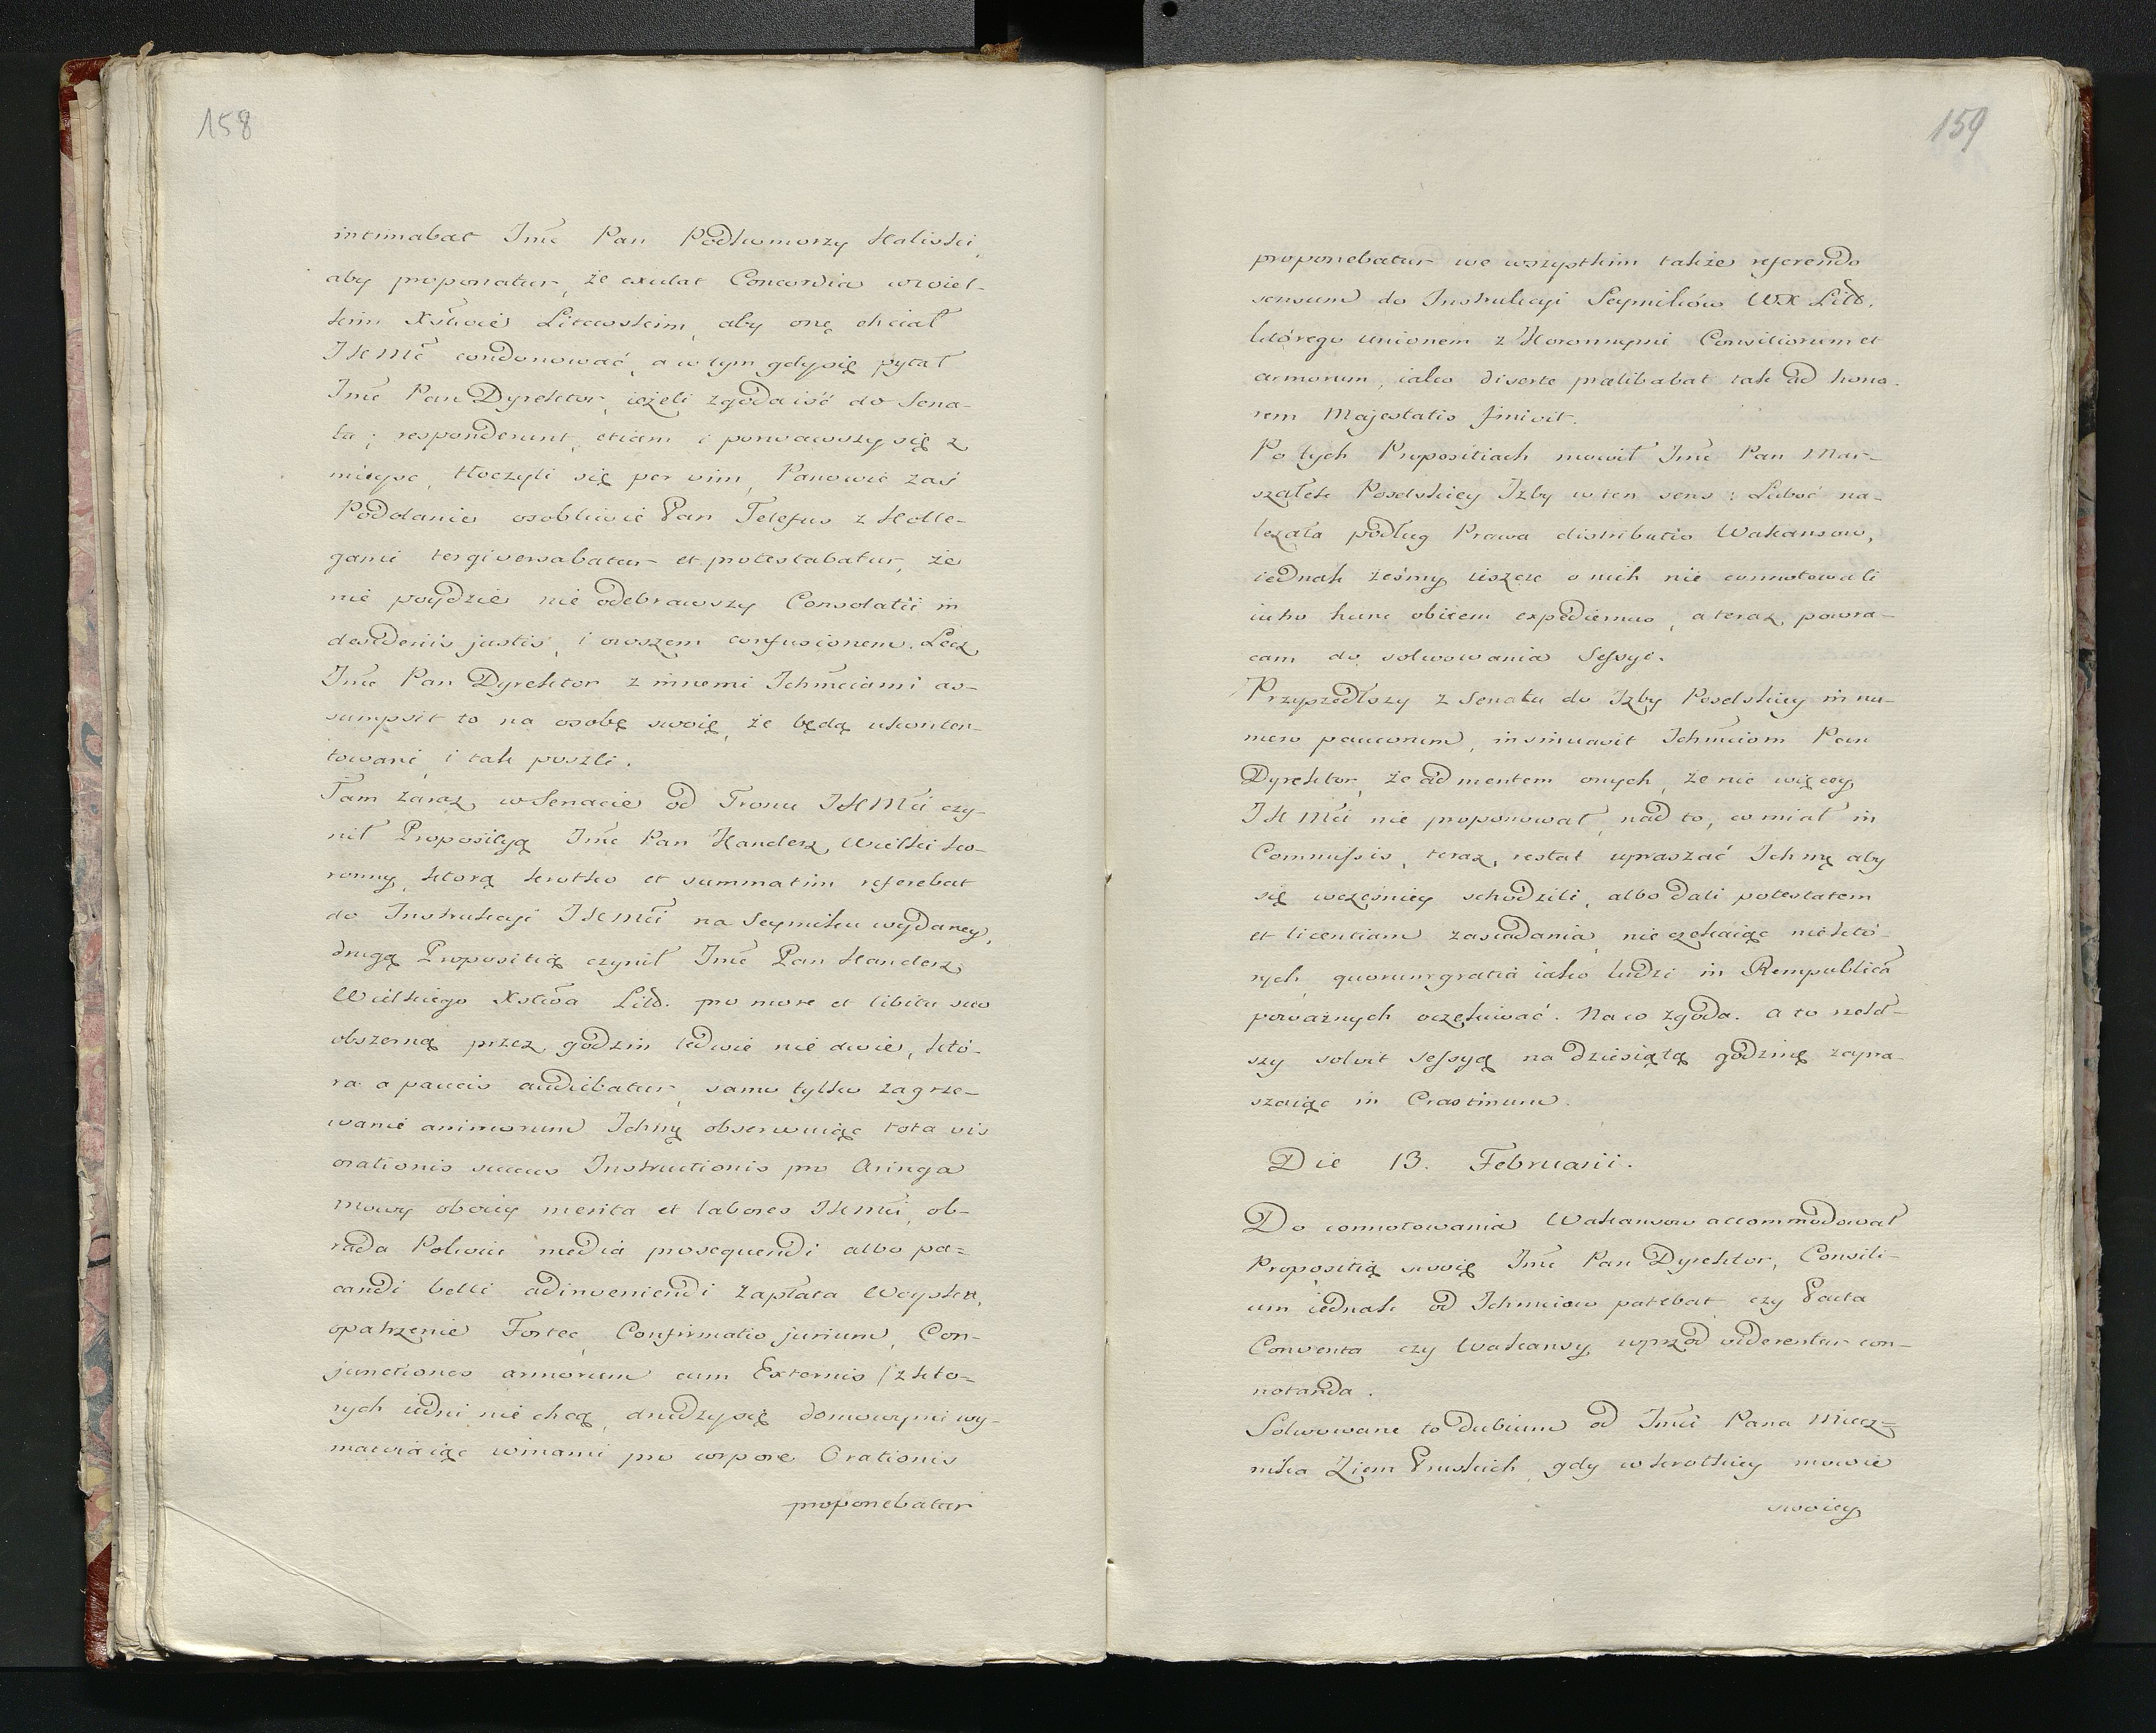 158
intimabat Jmć Pan Podkomorzy Haliski,
aby proponatur, że exulat Concordia w wiel-
kim Xstwie Litewskim, aby onę chciał
JKMć condonować, a w tym gdy się pytał
Jmć Pan Dyrektor, ieżeli zgoda iść do Sena-
tu; responderunt, etiam i porwawszy się z
mieysc, tłoczyli się per vim, Panowie zaś
Podolanie osobliwie Pan Telefus z Kolle-
gami tergiversabatur et protestabatur, że
nie poydzie nie odebrawszy Consolatii in
desideriis justis, i owszem confusionem. Lecz
Jmć Pan Dyrektor z innemi Ichmciami as-
sumpsit to na osobę swoię, że będą ukonten-
towani, i tak poszli.
Tam zaraz w Senacie od Tronu JKMći czy-
nił Proposityą Jmć Pan Kanclerz Wielki ko-
ronny, ktorą krotko et summatim referebat
do Instrukcyi JKMći na Seymiku wydaney,
drugą Propositią czynił Jmć Pan Kanclerz
Wielkiego Xstwa Litt. pro more et libitu suo
obszerną przez godzin ledwie nie dwie, któ-
ra a paucis audiebatur, samo tylko zagrze-
wanie animorum Ichmę obserwuiąc tota vis
orationis succus Instructionis pro Aringa
mowy obiciy merita et labores JKMći, ob-
rada Pokoiu media prosequendi albo pa-
candi belli adinveniendi zapłata Woyska,
opatrzenie Fortec, Confirmatio jurium, Con-
junctiones armorum cum Externis / z kto-
rych iedni nie chcą, drudzy się domowymi wy-
mawiaiąc winami pro corpore Orationis
proponebatur
159
proponebatur we wszystkim także referendo
sensum do Instrukcyi Seymików WX Litt.
którego unionem z Koronnymi Consiliorum et
armorum, iako diserte prælibabat tak ad hono-
rem Majestatis finivit.
Po tych Propositiach mowił Jmć Pan Mar-
szałek Poselskiey Izby w ten sens: Lubo na-
leżała podług Prawa distributio Wakansow,
iednak żeśmy ieszcze o nich nie connotowali
iutro hunc obicem expediemus, a teraz powra-
cam do solwowania Sessyi.
Przyszedłszy z Senatu do Izby Poselskiey in nu-
mero paucorum, insinuavit Ichmciom Pan
Dyrektor, że ad mentem onych, że nic więcey
JKMći nie proponował, nad to, co miał in
Commissis, teraz restat upraszać Ichmę aby
się wcześniey schodzili, albo dali potestatem
et licentiam zasiadania nie czekaiąc niektó-
rych, quorum gratia iako ludzi in Republica
poważnych oczekiwać. Na co zgoda. A to rzekł-
szy solvit sessyą na dziesiątą godzinę zapra-
szaiąc in Crastinum.
Die 13. Februarii.
Do connotowania Wakansow accommodował
Propositią swoię Jmć Pan Dyrektor, Consili-
um iednak od Ichmciow patebat, czy Pacta
Conventa czy Wakansy wprzod viderentur con-
notanda.
Solwowane to dubium od Jmći Pana Miecz-
nika Ziem Pruskich, gdy w krotkiey mowie
swoiey